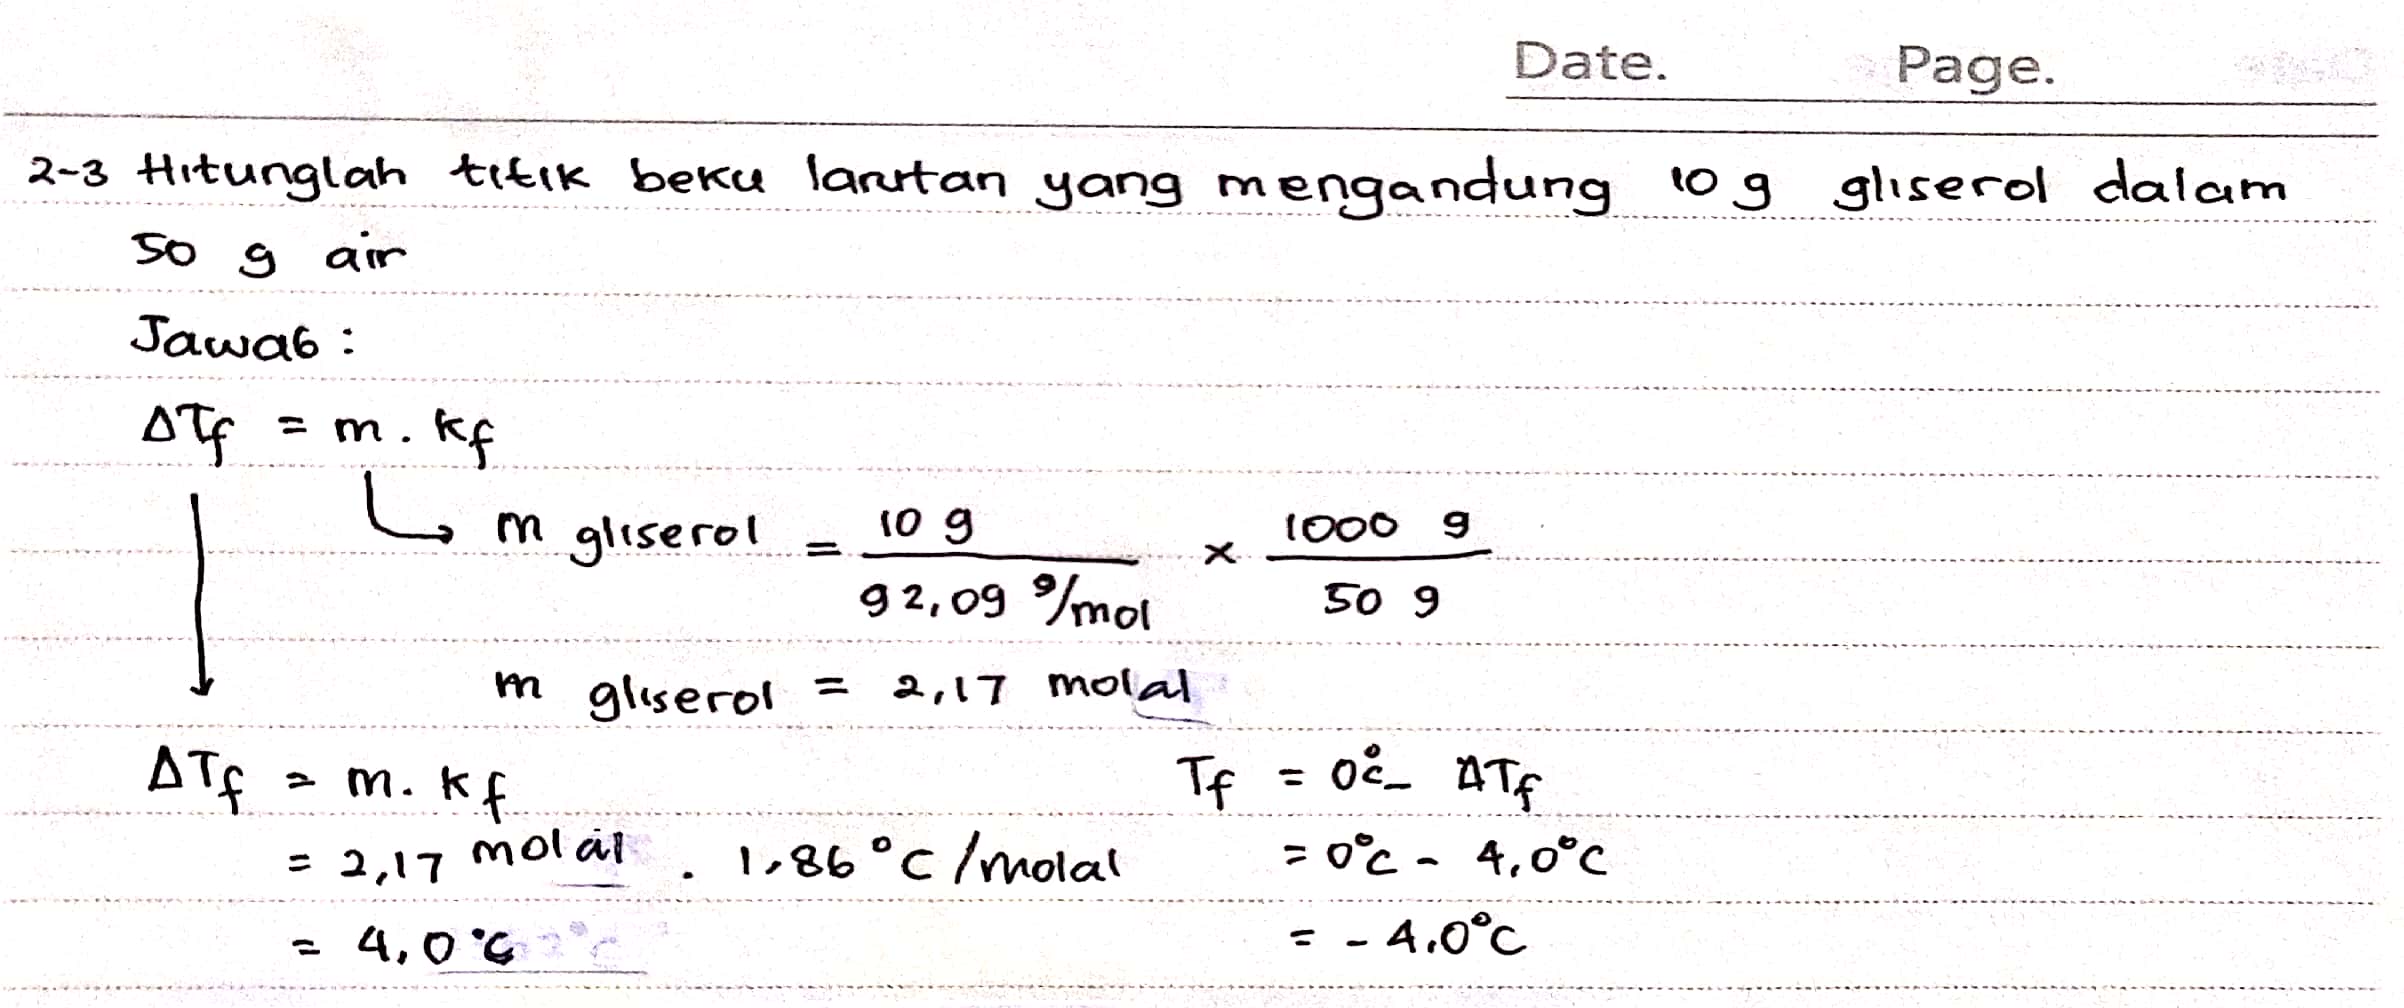 Date. Page.
2-3 Hitunglah titik beku larutan yang mengandung 10 g gliserol dalam
50 g air
Jawab :
ΔTf = m . kf
m gliserol = 10 g / 92,09 g/mol × 1000 g / 50 g
m gliserol = 2,17 molal
ΔTf = m . kf
= 2,17 molal . 1,86 °C /molal
= 4,0 °C
Tf = 0°C - ΔTf
= 0°C - 4,0°C
= - 4,0°C